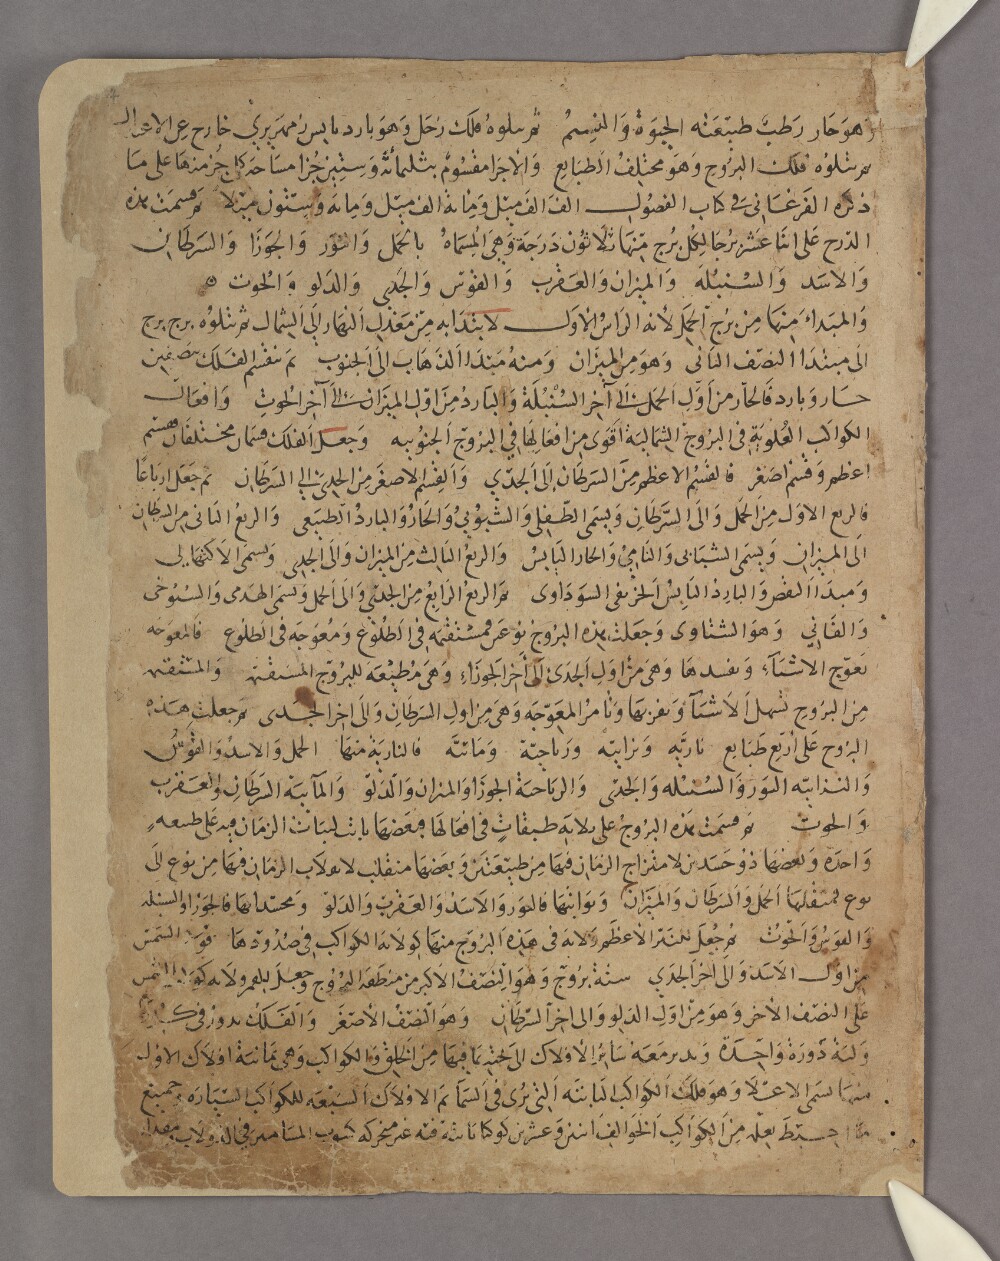 وهو حار رطب طبيعته الحيوة والنسيم ثم يتلوه فلك زحل وهو بارد يابس زمهريري خارج عن الاعتدال
ثم يتلوه فلك البروج وهو مختلف الطبايع والاجرا مقسوم بثلثمائة وستين جزا مساحة كل جز منها على ما
ذكره الفرغاني في كتاب الفصول الف الف ميل ومائة الف ميل ومائة وستون ميلا ثم قسمت هذه
الدرج على اثنا عشر برجا لكل برج منها ثلاثون درجة وهي المسماه بالحمل والثور والجوزا والسرطان
والاسد والسنبلة والميزان والعقرب والقوس والجدي والدلو والحوت
والمبداء منها من برج الحمل لانه الراس الاول لابتدايه من معدل النهار الى الشمال ثم يتلوه برج برج
الى مبتدا النصف الثاني وهو من الميزان ومنه مبتدا الذهاب الى الجنوب ثم تقسم الفلك بنصفين
حار وبارد فالحار من اول الحمل الى آخر السنبلة والبارد من اول الميزان الى آخر الحوت وافعال
الكواكب العلوية في البروج الشمالية اقوى من افعالها في البروج الجنوبيه وجعل الفلك قسمان مختلفان قسم
اعظم وقسم اصغر فالقسم الاعظم من السرطان الى الجدي والقسم الاصغر من الجدي الى السرطان ثم جعل ارباعا
فالربع الاول من الحمل والى السرطان ويسمى الطفلي والشبوبي والحار والبارد الطبيعي والربع الثاني من السرطان
الى الميزان ويسمى الشبابي والنامي والحار اليابس والربع الثالث من الميزان والى الجدي ويسمى الاكتهالي
ومبدا النقص والبارد اليابس الخريفي السوداوى ثم الربع الرابع من الجدي والى الحمل ويسمى الهدمى والشيوخى
والفاني وهو الشتاوى وجعلت هذه البروج نوعين مستقيمه في الطلوع ومعوجه في الطلوع فالمعوجه
تعوج الاشياء وتفسدها وهى من اول الجدى الى آخر الجوزاء وهى مطيعه للبروج المستقيمه والمستقيمه
من البروج تسهل الاشيا وتقربها وتامر المعوجه وهى من اول السرطان والى اخر الجدى ثم جعلت هذه
البروج على اربع طبايع ناريه وترابيه ورياحية ومائيه فالنارية منها الحمل والاسد والقوس
والترابيه الثور والسنبله والجدى والرياحية الجوزا والميزان والدلو والمآيية السرطان والعقرب
والحوت ثم قسمت هذه البروج على ثلاثه طبقات في افعالها فبعضها ثابت لثبات الزمان فيه على طبيعه
واحدة وبعضها ذو جسدين لامتزاج الزمان فيها من طبيعتين وبعضها منقلب لانقلاب الزمان فيها من نوع الى
نوع فمنقلبها الحمل والسرطان والميزان وثوابتها فالثور والاسد والعقرب والدلو ومجسداتها فالجوزا والسنبله
والقوس والحوت ثم جعل للنير الاعظم ولاية في هذه البروج منها كولاية الكواكب في حدودها فولاية الشمس
من اول الاسد والى اخر الجدي ستة بروج وهو النصف الاكبر من منطقة البروج وجعل للقمر ولاية كولاية الشمس
على النصف الآخر وهو من اول الدلو والى اخر السرطان وهو النصف الاصغر والفلك يدور في كل يوم
وليلة دورة واحدة ويدير معه ساير الافلاك الى تحته بما فيها من الخلق والكواكب وهى ثمانية افلاك الاول
منها يسمى الاعلا وهو فلك الكواكب الثابته التي ترى في السما ثم الافلاك السبعه للكواكب السياره وجميع
من الكواكب الخوالف اثنين وعشرين كوكبا ثابتة فيه غير متحركه كثبوت المسامير في الدولاب